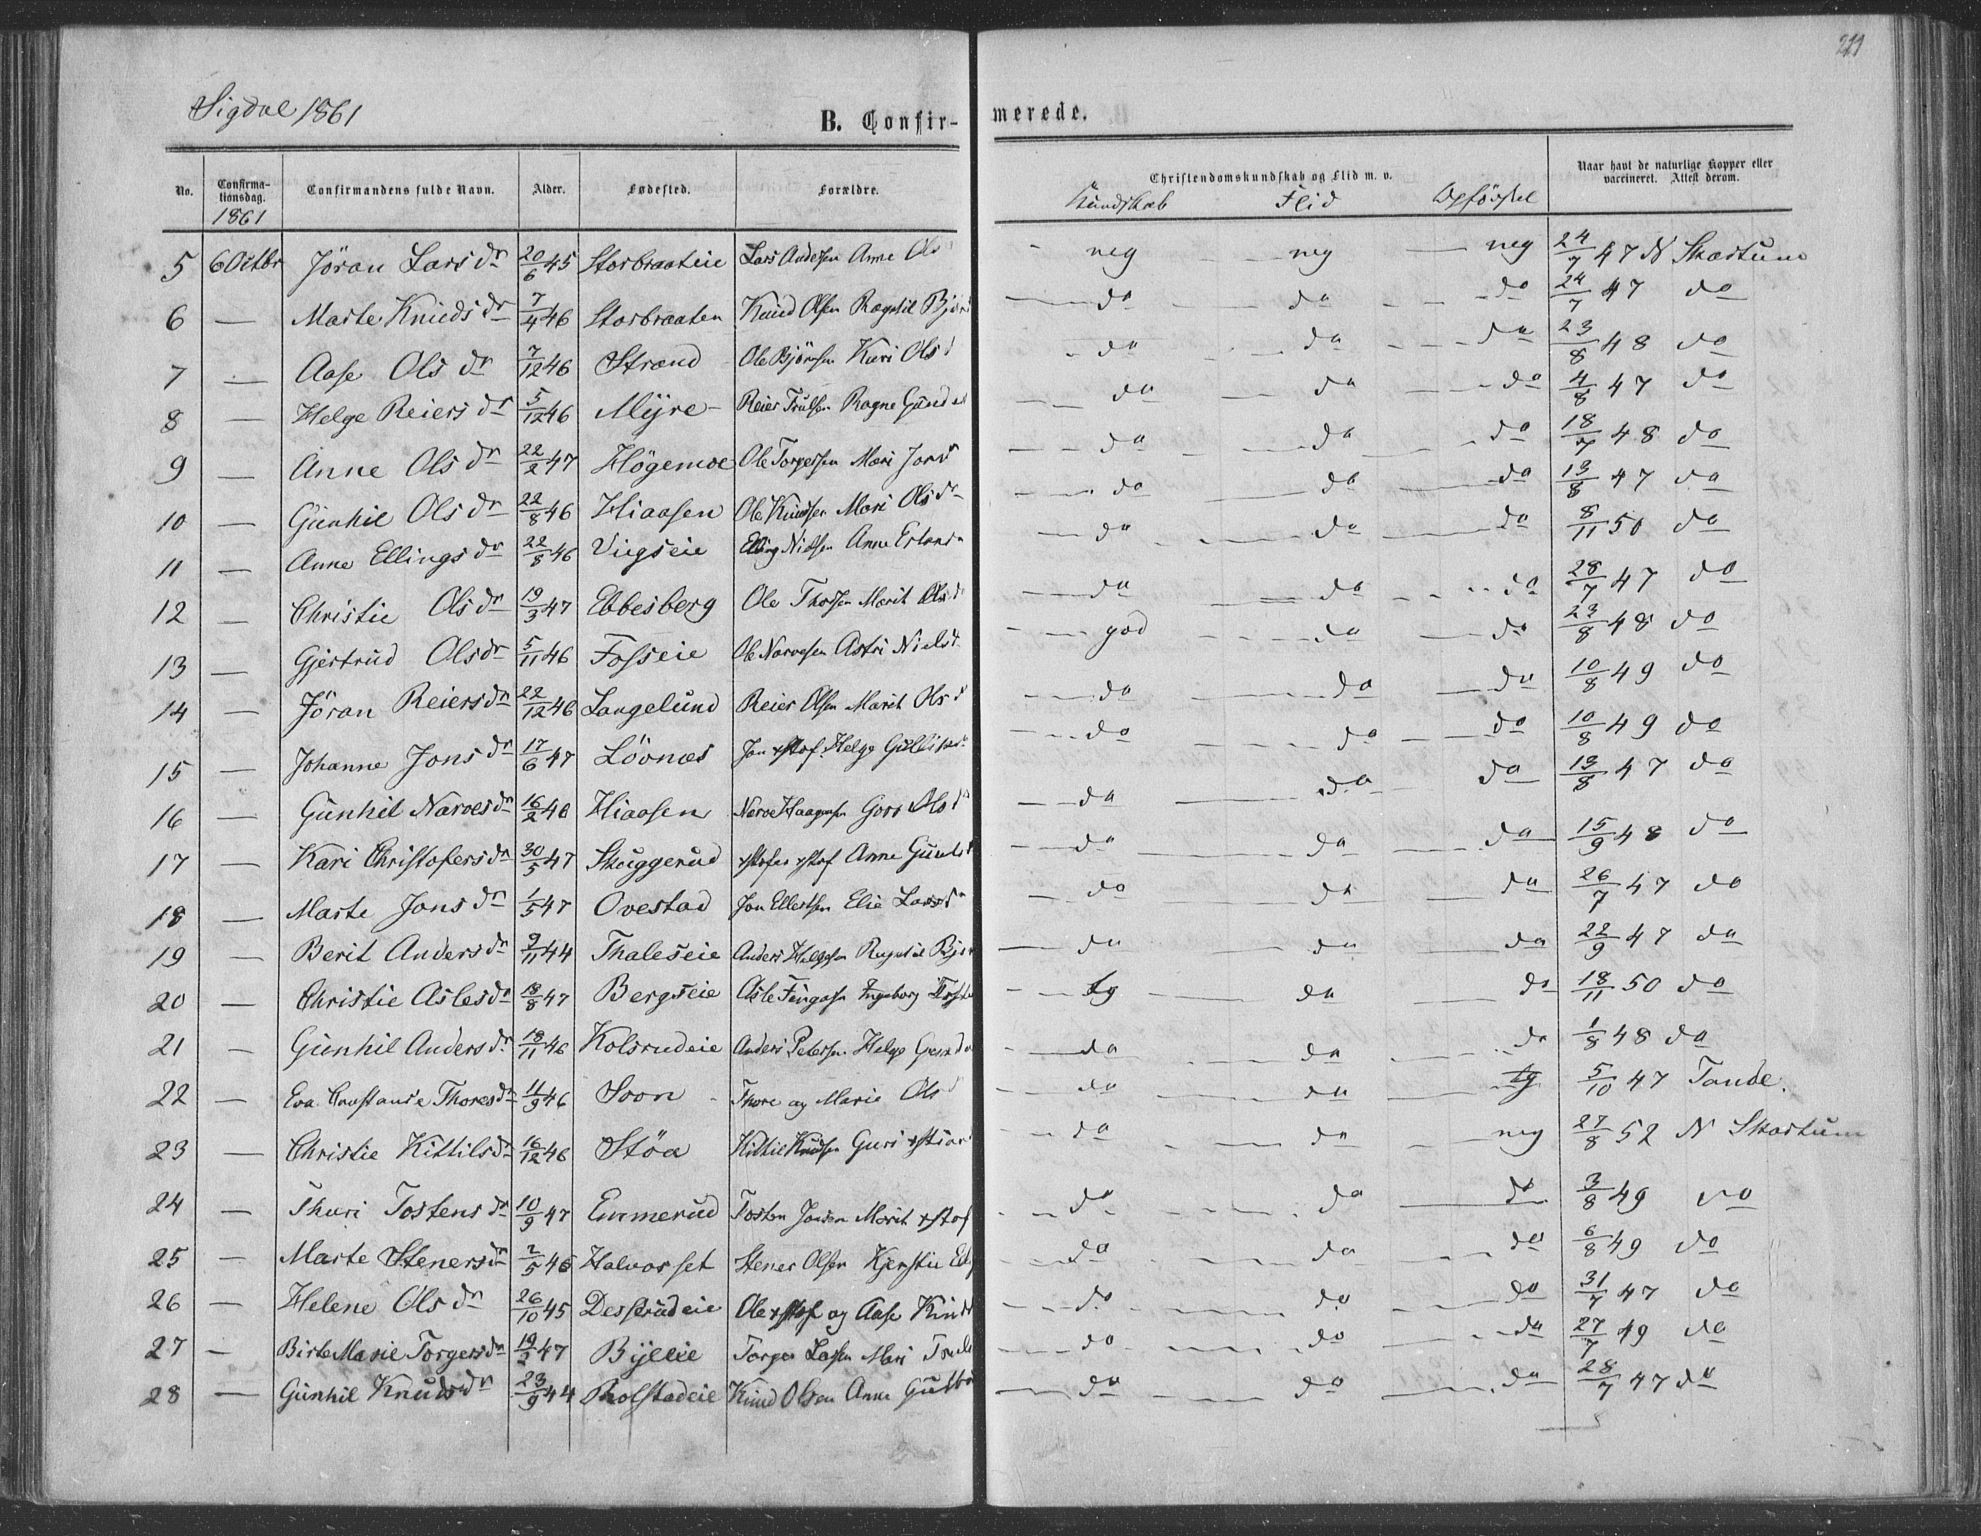 221
Sigdal 1861
B. Confir- merede.
No. Confirmationsdag. Confirmandens fulde Navn. Alder. Fødested. Forældre. Christendomskundskab og Flid m. v. Naar havt de naturlige Kopper eller vaccineret. Attest derom.
1861 Kundskab Flid Opförsel
5 6 Octbr Jöran Larsdr 20/6 45 Storbraateie Lars Andersen Anne Ols neg neg neg 24/7 47 N Skartum
6 — Marte Knudsdr 7/4 46 Storbraaten Knud Olsen Ragnhil do do do 24/7 47 do
7 — Aase Olsdr 7/12 46 Strand Ole Björnsen Kari Olsd do do do 23/8 48 do
8 — Helge Reiersdr 5/12 46 Myre Reier Trulsen Ragne do do do 4/8 47 do
9 — Anne Olsdr 22/2 47 Högemoe Ole Torgersen Mari Jonsd do do do 18/7 48 do
10 — Gunhil Olsdr 22/8 46 Hiaasen Ole Knudsen Mari Olsdr do do do 13/8 47 do
11 — Anne Ellingsdr 22/8 46 Viigseie Elling Nielsen Anne do do do 8/11 50 do
12 — Christie Olsdr 19/3 47 Ebbesberg Ole Thorsen Marit Olsd do do do 28/7 47 do
13 — Gjertrud Olsdr 5/11 46 Fosseie Ole Narvesen Astri Nielsd god do do 23/8 48 do
14 — Jöran Reiersdr 22/12 46 Langelund Reier Olsen Marit Olsd do do do 10/8 49 do
15 — Johanne Jonsdr 17/6 47 Lövnæs Jon xstof. Helge do do do 10/8 49 do
16 — Gunhil Narvesdr 16/2 46 Hiaasen Narve Haagensen Goro Olsd do do do 13/8 47 do
17 — Kari Christofersdr 30/5 47 Skuggerud xstofer xstof Anne do do do 15/9 48 do
18 — Marte Jonsdr 1/5 47 Ovestad Jon Ellertsen Elie Larsdr do do do 26/7 47 do
19 — Berit Andersdr 9/11 44 Thaleseie Anders Helgesen do do do 22/9 47 do
20 — Christie Aslesdr 18/8 47 Bergseie Asle Ingeborg tg do do 18/11 50 do
21 — Gunhil Andersdr 18/11 46 Kolsrudeie Anders Petersen Helge do do do 1/8 48 do
22 — Eva Constance Thoresdr 11/9 46 Soon Thore og Marie Olsd do do tg 5/10 47 Tande.
23 — Christie Kittilsdr 16/12 46 Stöa Kittil Knudsen Guri do do neg 27/8 52 N Skartum
24 — Thuri Tostensdr 10/9 47 Enmerud Tosten Jonsen Marit xstof do do do 3/8 49 do
25 — Marte Stenersdr 2/5 46 Halvorset Stener Olsen Kjerstie do do do 6/8 49 do
26 — Helene Olsdr 26/10 45 Desserudeie Ole xstof og Aase do do do 31/7 47 do
27 — Birte Marie Torgersdr 19/2 47 Torger Larsen Mari do do do 27/7 49 do
28 — Gunhil Knudsdr 23/9 44 Rolfstadeie Knud Olsen Anne do do do 28/7 47 do